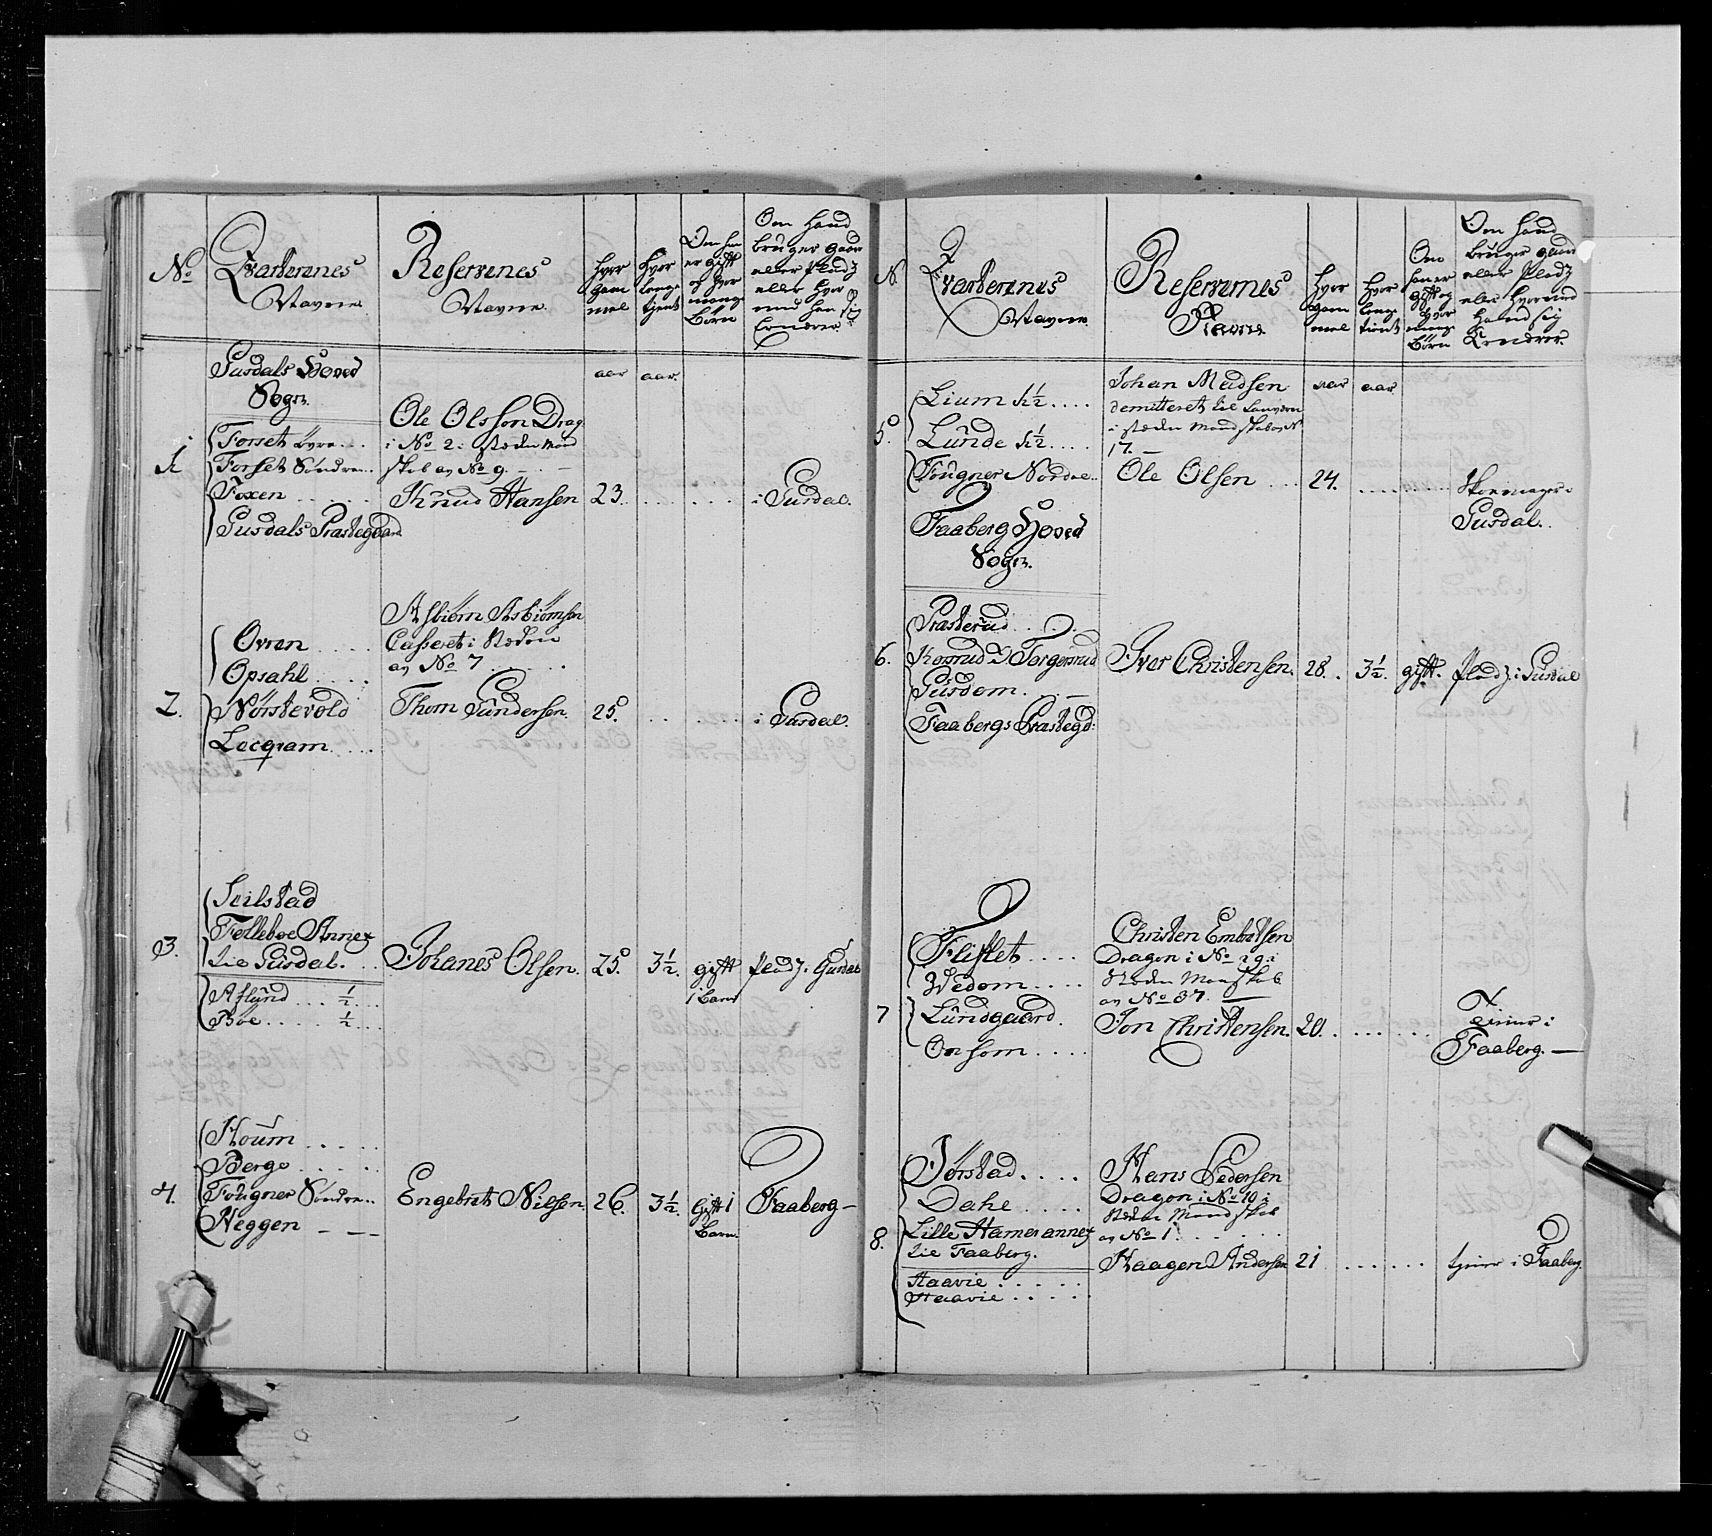 No
Qvarterenes
Navne
Reservenes
Navne
Hvor
gam
mel
Hvor
længe
tient
Om han
er gift
og hvor
mange
Børn
Om hand
bruger gaard
eller Pladz
eller hvor
med han sig
Ernærer
Gusdals Hoved
Sogn.
aar
aar.
1
Forset øvre
Forset Søndre
Foxen
Gusdals Præstegaard
Ole Olsson Drag
i No 2 i stæden Mand
skab av No 9.
Knud Hansen
23.
i Gusdal.
2.
Ovren
Opsahl
Nørstevold
Locqvam
Asbiørn Asbiørnsen
Casseret i Stæden
av No 7
Thom Gundersen.
25.
i Gusdal.
3.
Seilstad
Folleboe Annex
til Gusdal.
Aflund ½
Bøe ½
Johanes Olsen.
25.
3½.
gift
1 barn
Pladz i Gusdal
4.
Houm
Berge
Fougner Søndre
Heggen
Engebret Nilsen
26.
3½.
Gift 1
barn
Faaberg
N.
Qvarterenes
Navne
Reservenes
Navne
Hvor
gam
mel
Hvor
længe
tient
Om
han er
Gift og
hvor
mange
Børn
Om Hand
Bruger gaard
eller Pladz
eller hvormed
hand sig
Ernærer.
aar
aar
5.
Lium ½
Lunde ½
Fougner Nordre
Johan Madsen
demitteret til Landværn
i stæden Mandskab av N
17.
Ole Olsen
24.
Skoemager i
Gusdal.
Faaberg Hoved
Sogn.
6.
Præsterud
Korsrud & Torgersrud
Gusdom.
Faabergs Præstegd:
Iver Christensen.
28.
3½.
gift.
Pladz i Gusdal
7
Fliflet
Wedom
Lundgaard.
Onsom
Christen Embretsen
Dragon i No 19 i
Stæden Mandskab
av No 37.
Jon Christensen.
20.
Tiener i
Faaberg.
8.
Jørstad
Dahl
Lille Hamer annex
til Faaberg.
Haavie
Haavie
Hans Pedersen
Dragon i No 10 i
Stæden Mandskab
av No 1
Haagen Andersen
21
tjener i Faaberg